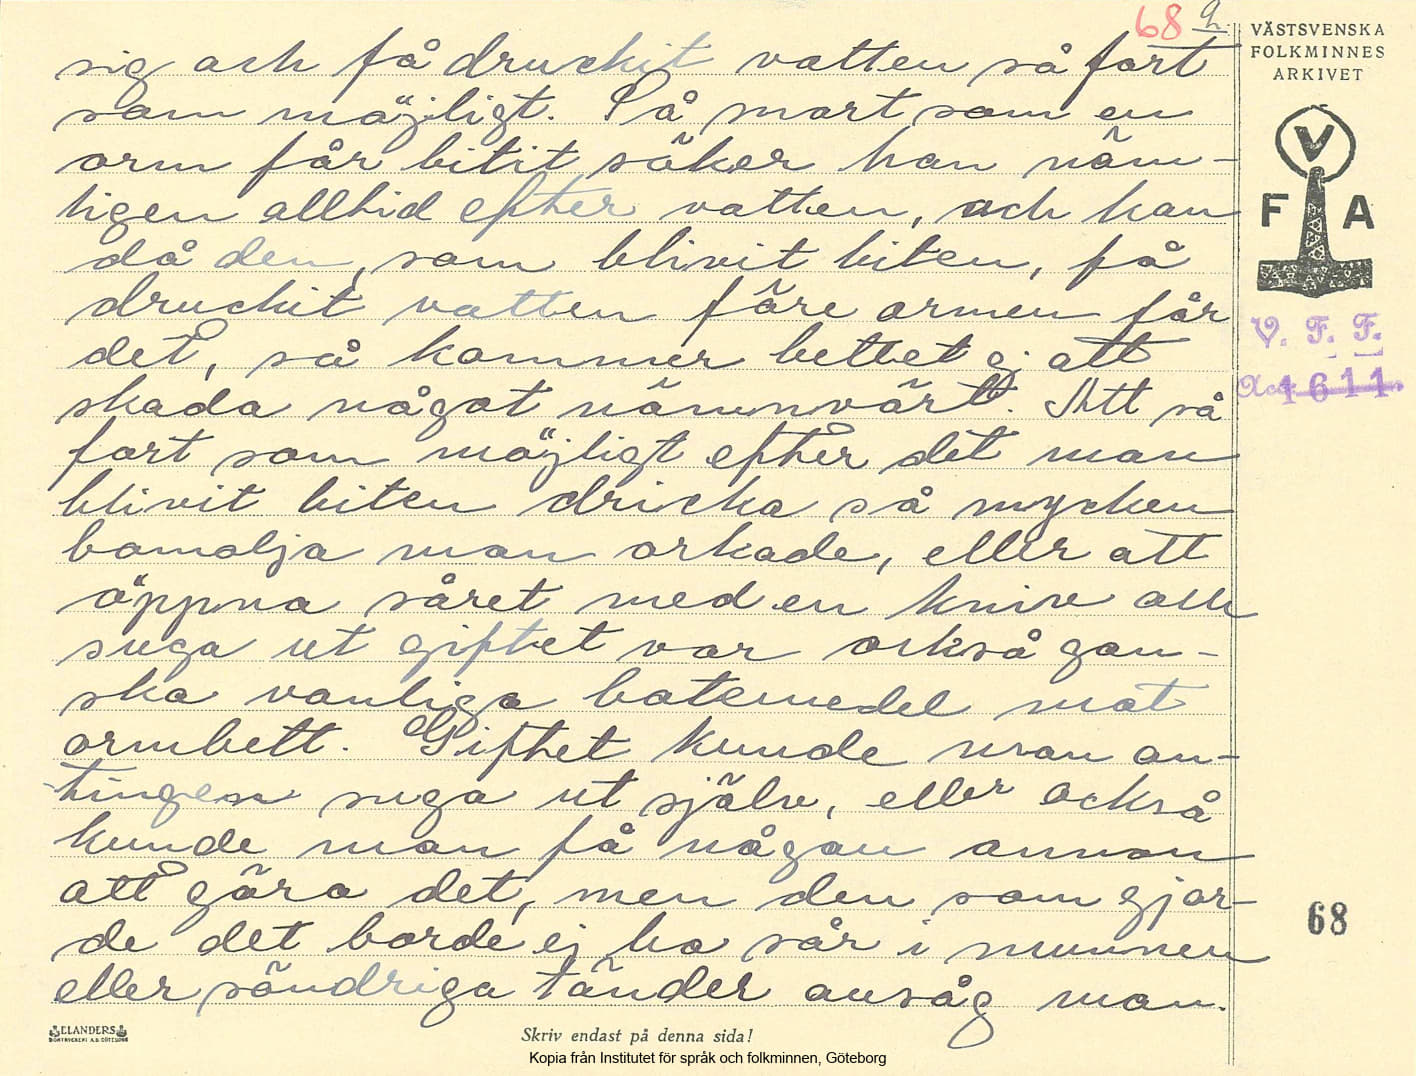 68 9.
VÄSTSVENSKA
FOLKMINNES
ARKIVET
V
F A
V. F. F.
Acc. 1611.
sig och få druckit vatten så fort
som möjligt. Så snart som en
orm får bitit söker han näm-
ligen alltid efter vatten, och kan
då den, som blivit biten, få
druckit vatten före ormen får
det, så kommer bettet ej att
skada något nämnvärt. Att så
fort som möjligt efter det man
blivit biten dricka så mycken
bomolja man orkade, eller att
öppna såret med en kniv och
suga ut giftet var också gan-
ska vanliga botemedel mot
ormbett. Giftet kunde man an-
tingen suga ut själv, eller också
kunde man få någon annan
att göra det, men den som gjor-
de det borde ej ha sår i munnen
eller söndriga tänder ansåg man.
68
ELANDERS
BOKTRYCKERI A.B. GÖTEBORG
Skriv endast på denna sida!
Kopia från Institutet för språk och folkminnen, Göteborg